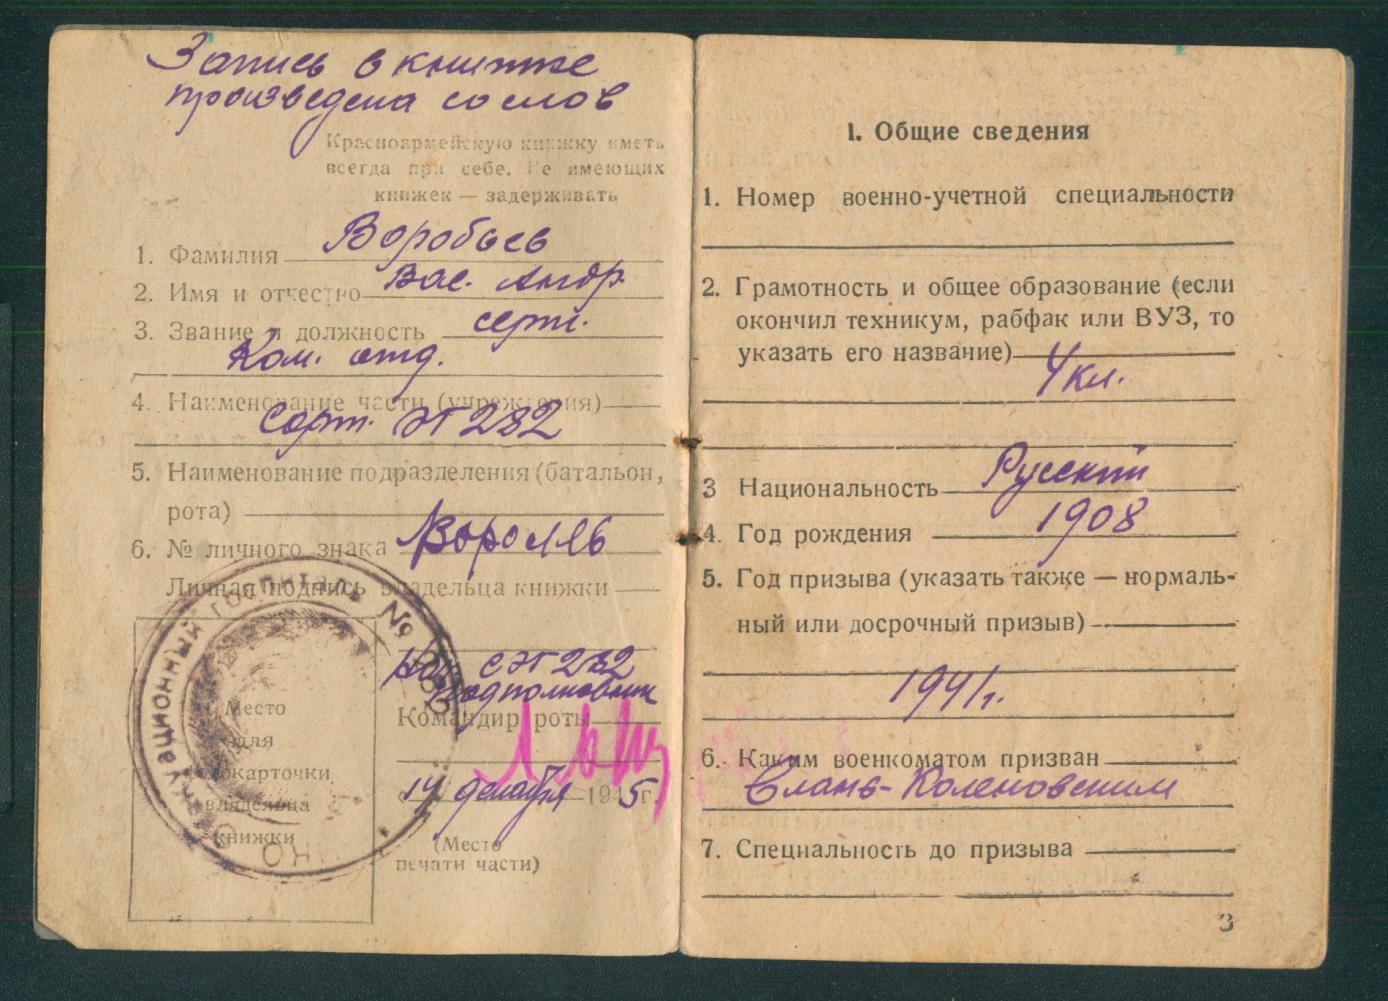 Запись в книжке
произведена со слов
Красноармейскую книжку иметь
всегда при себе. Не имеющих
книжек — задерживать
1. Фамилия Воробьев
2. Имя и отчество Вас. Андр.
3. Звание и должность серж.
Ком. отд.
4. Наименование части (учреждения)
Сорт. ЭГ 282
5. Наименование подразделения (батальон,
рота)
6. № личного знака
Личная подпись владельца книжки
Эвакуационный госпиталь №
НКО
СЭГ 282
подполковник
Командир роты
14 декабря 1945 г.
Место
для
фотокарточки
владельца
книжки
(Место
печати части)
I. Общие сведения
1. Номер военно-учетной специальности
2. Грамотность и общее образование (если
окончил техникум, рабфак или ВУЗ, то
указать его название)
4 кл.
3 Национальность Русский
4. Год рождения 1908
5. Год призыва (указать также — нормаль-
ный или досрочный призыв)
1941 г.
6. Каким военкоматом призван
Елань-Коленовским
7. Специальность до призыва
3